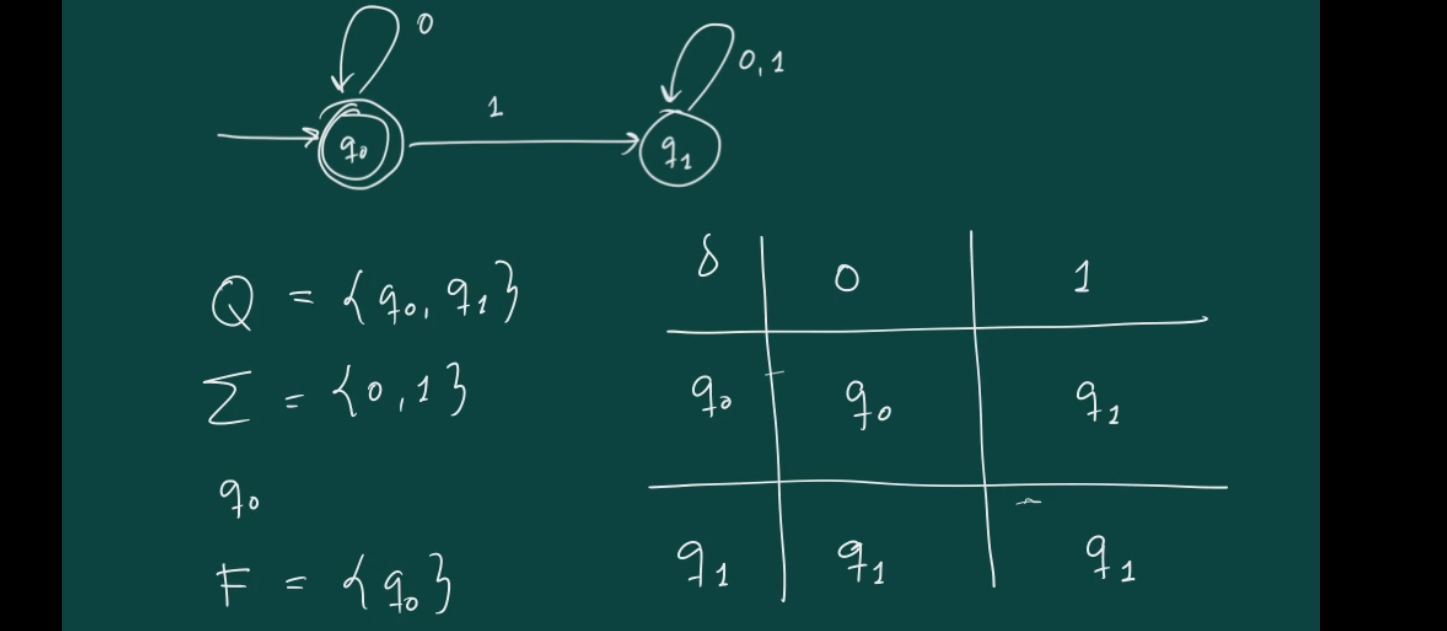 0
0, 1
1
q₀
q₁
Q = {q₀, q₁}
Σ = {0, 1}
q₀
F = {q₀}
δ 0 1
q₀ q₀ q₁
q₁ q₁ q₁